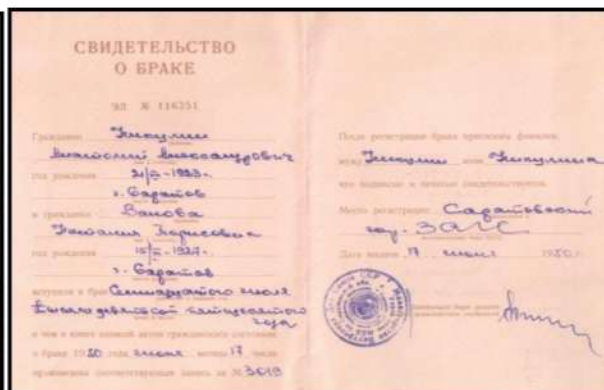 СВИДЕТЕЛЬСТВО
О БРАКЕ
№ 116251
Гражданин Никулин
Анатолий Александрович
год рождения 1923 г.
г. Саратов
и гражданка Ванова
Наталия Борисовна
год рождения 1927 г.
г. Саратов
вступили в брак Семнадцатого июля
тысяча девятьсот пятидесятого
года
о чем в книге записей актов гражданского состояния
о браке 1950 года июля месяца 17 числа
произведена соответствующая запись за № 3019
После регистрации брака присвоены фамилии:
мужу Никулин жене Никулина
что подписью и печатью свидетельствуется.
Место регистрации Саратовский
ЗАГС
Дата выдачи 17 июля 1950 г.